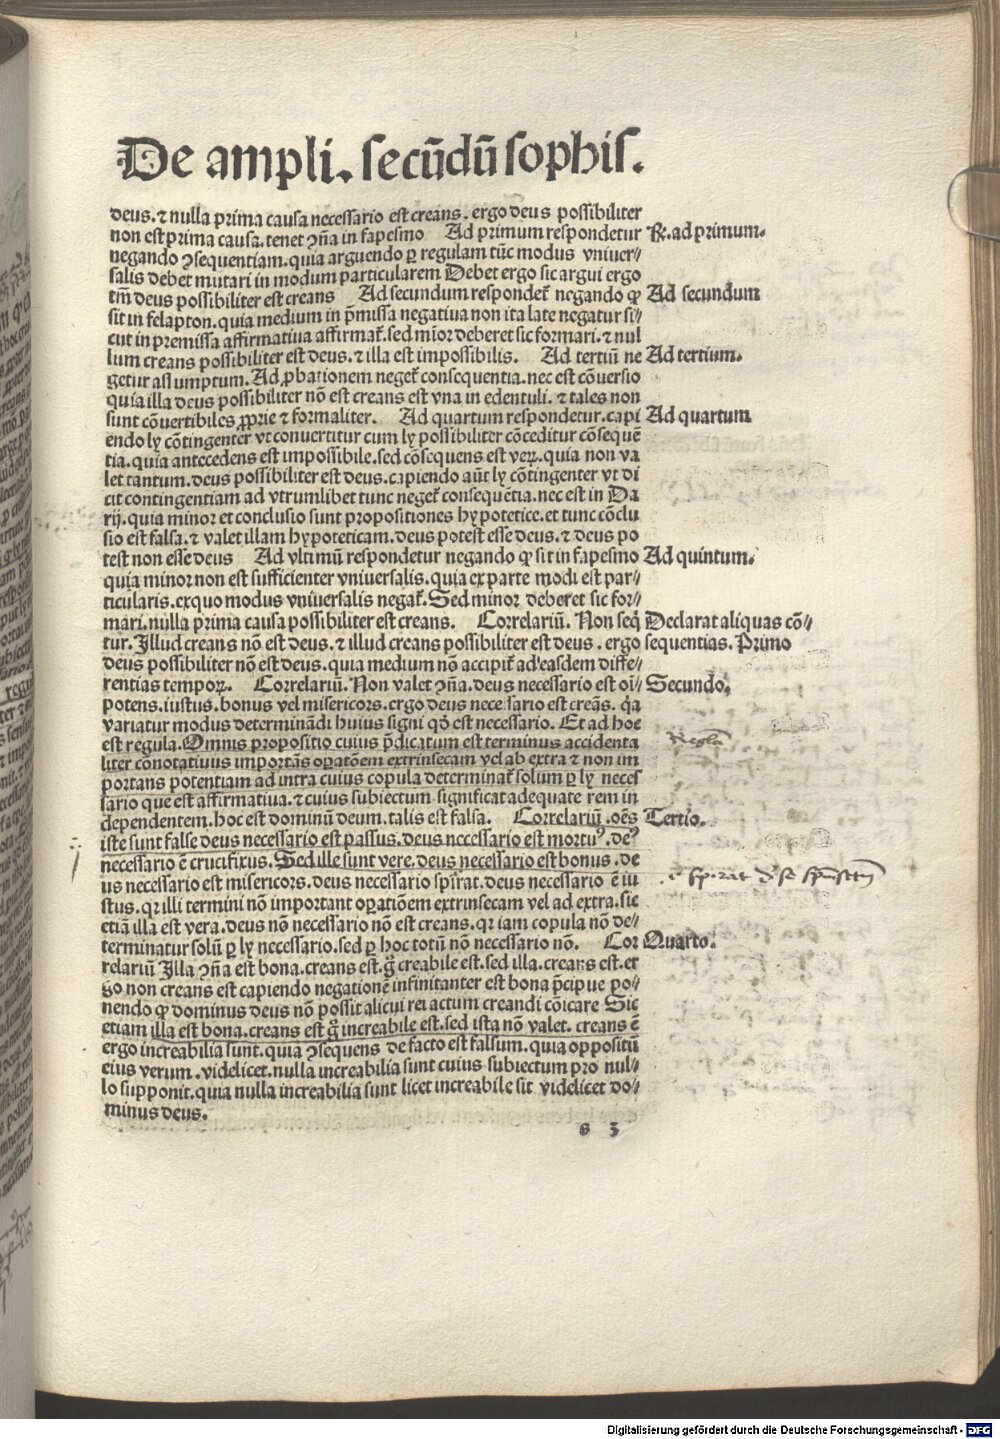 De ampli. secūdū sophis.
deus. ⁊ nulla prima causa necessario est creans. ergo deus possibiliter
non est prima causa. tenet ꝯña in fapesmo Ad primum respondetur
℞. ad primum.
negando ꝯsequentiam. quia arguendo ꝑ regulam tūc modus vniuer⸗
salis debet mutari in modum particularem Debet ergo sic argui ergo
tm̄ deus possibiliter est creans Ad secundum respondet᷑ negando ꝙ
Ad secundum
sit in felapton. quia medium in p̄missa negatiua non ita late negatur si⸗
cut in premissa affirmatiua affirmat᷑. sed mior deberet sic formari. ⁊ nul
lum creans possibiliter est deus. ⁊ illa est impossibilis. Ad tertiū ne
Ad tertium.
getur assumptum. Ad ꝓbationem neget᷑ consequentia. nec est cōuersio
quia illa deus possibiliter nō est creans est vna in edentuli. ⁊ tales non
sunt cōuertibiles ꝓprie ⁊ formaliter. Ad quartum respondetur. capi
Ad quartum
endo ly cōtingenter vt conuertitur cum ly possibiliter cōceditur cōsequē
tia. quia antecedens est impossibile. sed cōsequens est veꝝ. quia non va
let tantum. deus possibiliter est deus. capiendo aūt ly cōtingenter vt di
cit contingentiam ad vtrumlibet tunc neget᷑ consequētia. nec est in Da
rij. quia minor et conclusio sunt propositiones hypotetice. et tunc cōclu
sio est falsa. ⁊ valet illam hypoteticam. deus potest esse deus. ⁊ deus po
test non esse deus Ad vltimū respondetur negando ꝙ sit in fapesmo
Ad quintum.
quia minor non est sufficienter vniuersalis. quia ex parte modi est par⸗
ticularis. ex quo modus vniuersalis negat᷑. Sed minor deberet sic for⸗
mari. nulla prima causa possibiliter est creans. Correlariū. Non seq̄
Declarat aliquas cō⸗
tur. Illud creans nō est deus. ⁊ illud creans possibiliter est deus. ergo
sequentias. Primo
deus possibiliter nō est deus. quia medium nō accipit᷑ ad easdem diffe⸗
rentias tempoꝝ. Correlariū. Non valet ꝯña. deus necessario est oi⸗
Secundo.
potens. iustus. bonus vel misericors. ergo deus necessario est creās. q̄a
variatur modus determināndi huius signi qđ est necessario. Et ad hoc
est regula. Omnis propositio cuius p̄dicatum est terminus accidenta
Regula
liter cōnotatiuus importās oꝑatōem extrinsecam vel ab extra ⁊ non im
portans potentiam ad intra cuius copula determinat᷑ solum ꝑ ly neces
sario que est affirmatiua. ⁊ cuius subiectum significat adequate rem in
dependentem. hoc est dominū deum. talis est falsa. Correlariū. oēs
Tertio.
iste sunt false deus necessario est passus. deus necessario est mortuꝰ. deꝰ
necessario ē crucifixus. Sed ille sunt vere. deus necessario est bonus. de
us necessario est misericors. deus necessario spirat. deus necessario ē iu
stus. qr illi termini nō important oꝑatiōem extrinsecam vel ad extra. sic
etiā illa est vera. deus nō necessario nō est creans. qr iam copula nō de⸗
terminatur solū ꝑ ly necessario. sed ꝑ hoc totū nō necessario nō. Cor
Quarto.
relariū Illa ꝯña est bona. creans est. g̊ creabile est. sed illa. creans est. er
go non creans est capiendo negationē infinitanter est bona p̄cipue po⸗
nendo ꝙ dominus deus nō possit alicui rei actum creandi cōicare Sic
etiam illa est bona. creans est g̊ increabile est. sed ista nō valet. creans ē
ergo increabilia sunt. quia ꝯsequens de facto est falsum. quia oppositū
eius verum. videlicet. nulla increabilia sunt cuius subiectum pro nul⸗
lo supponit. quia nulla increabilia sunt licet increabile sit videlicet do⸗
minus deus.
s 3
Digitalisierung gefördert durch die Deutsche Forschungsgemeinschaft - DFG